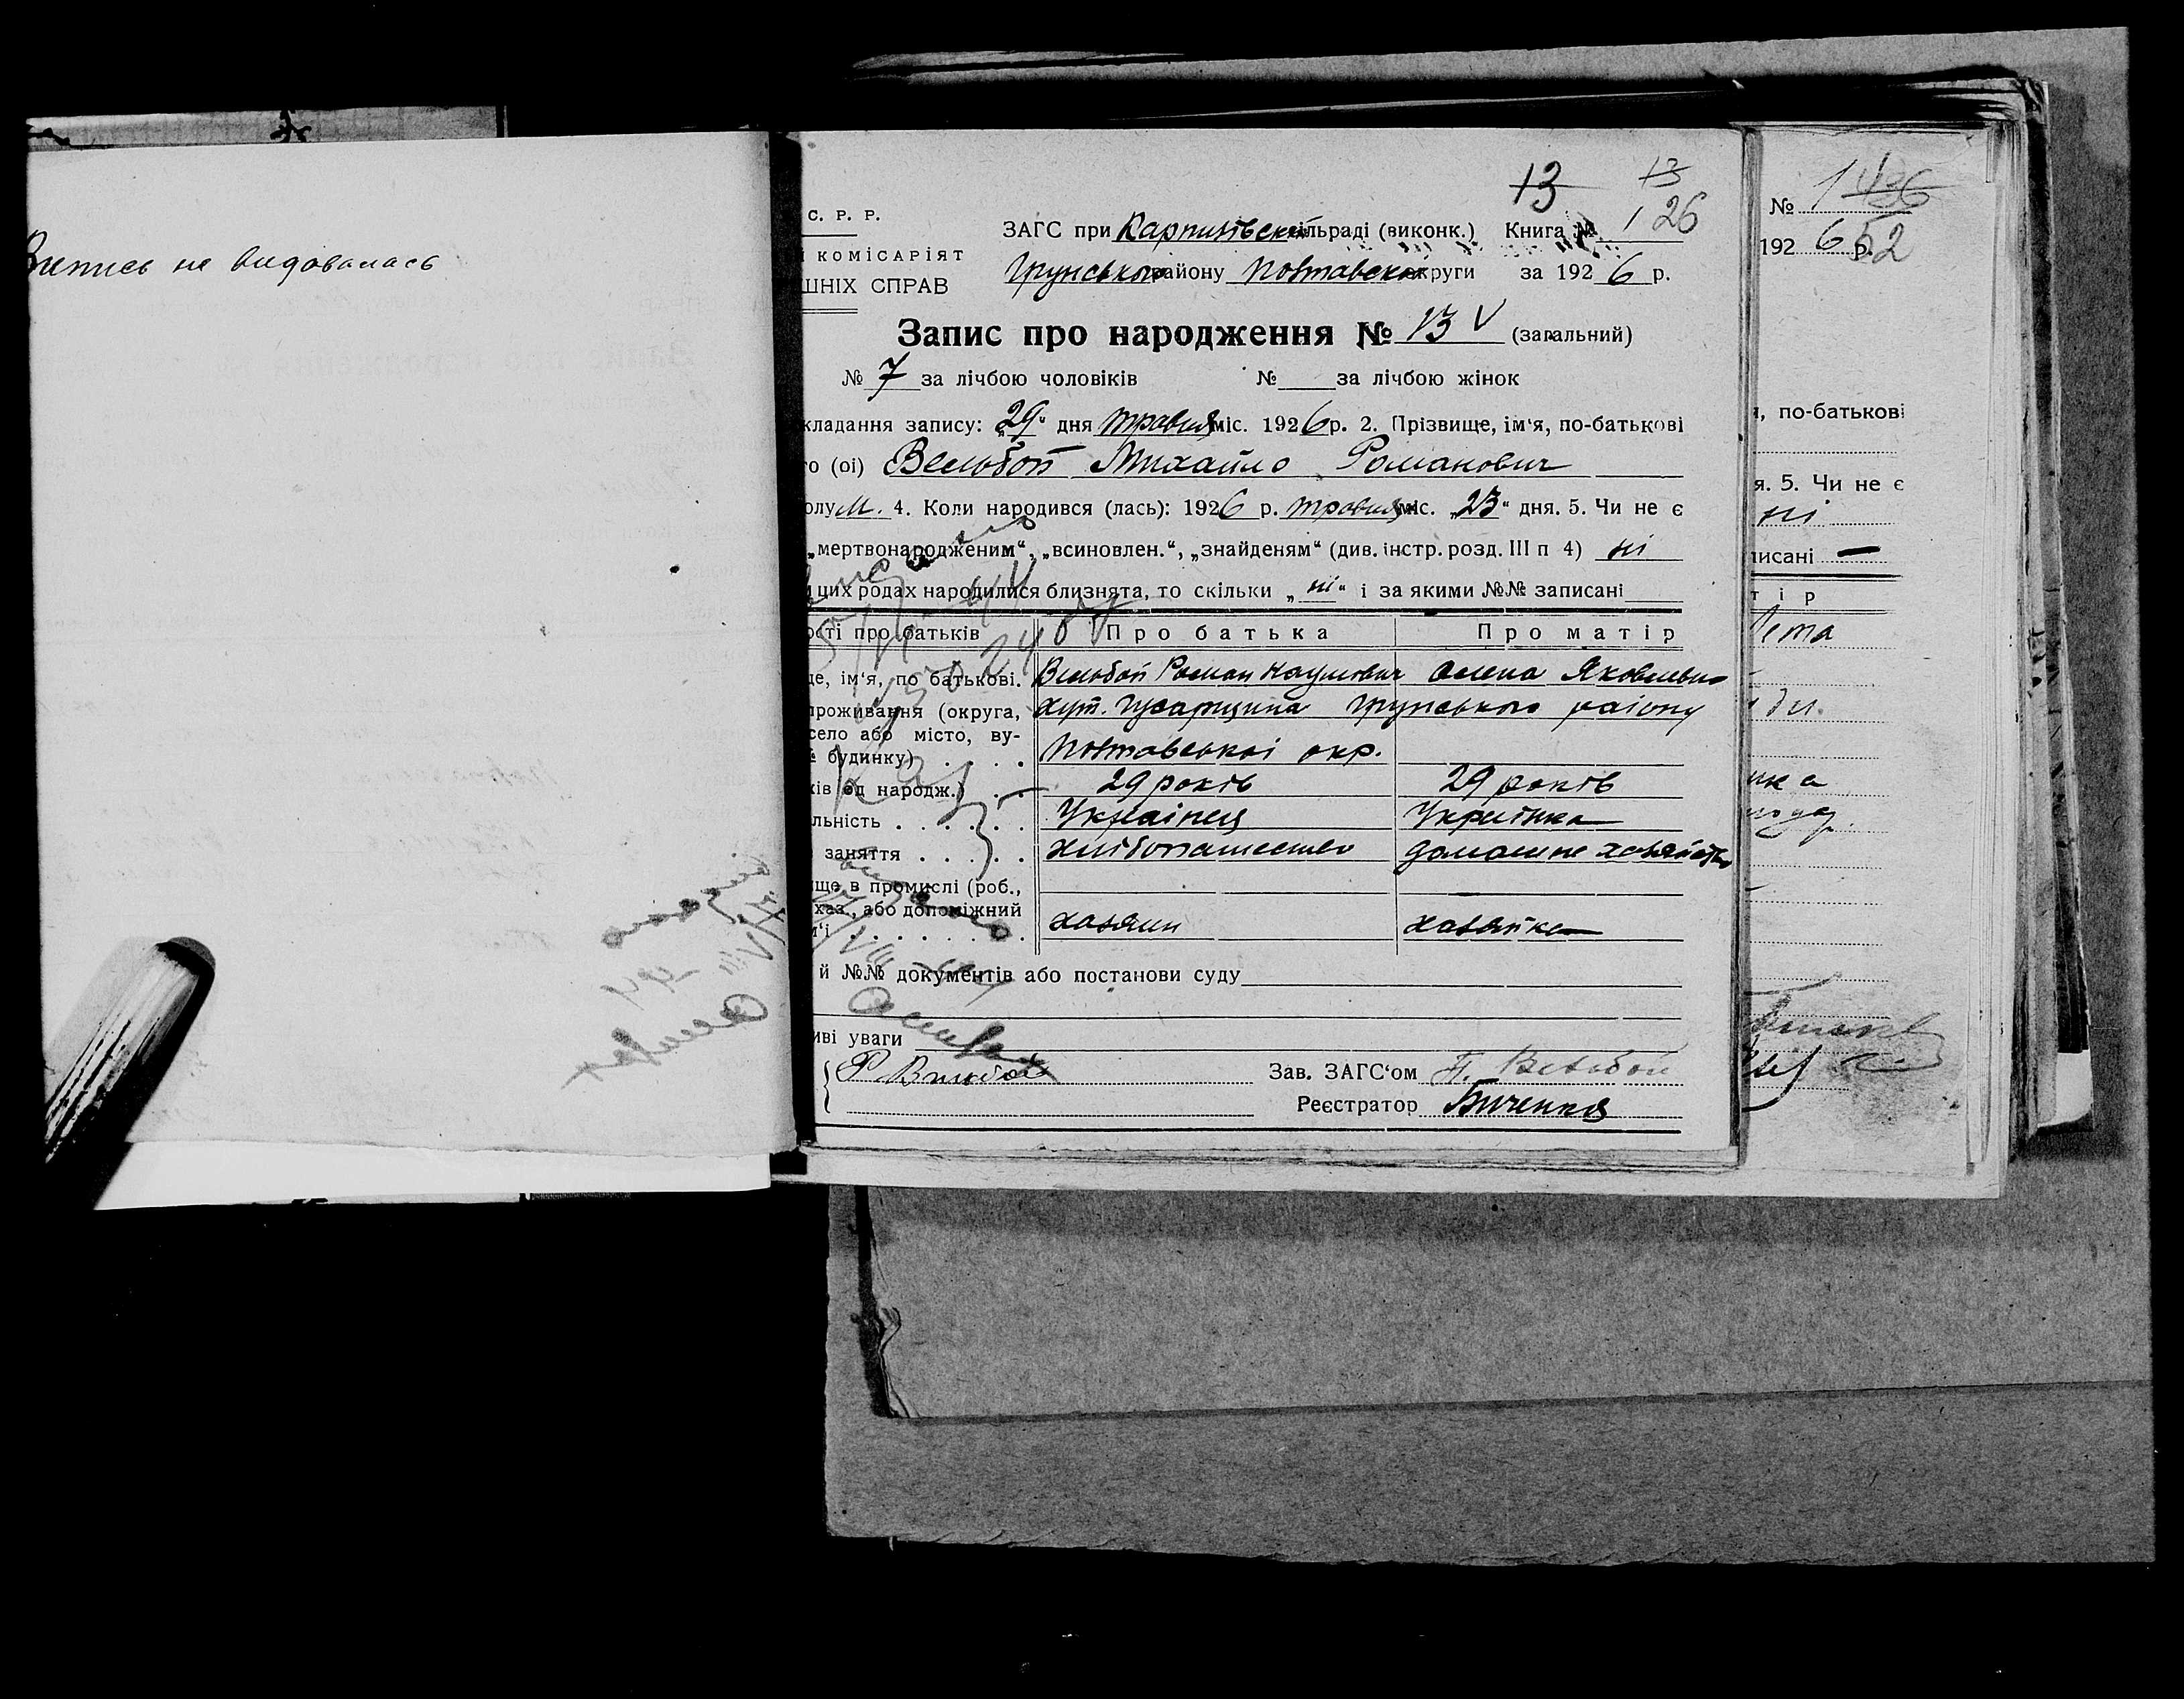 Випись не видавалась
13 13
С. Р. Р.
ЗАГС при Карпилівській сільраді (виконк.) Книга № 1 26
КОМІСАРІЯТ
Грунського району Полтавської округи за 1926 р.
ШНІХ СПРАВ
Запис про народження № 13 V (загальний)
№ 7 за лічбою чоловіків № за лічбою жінок
кладання запису: „29" дня травня міс. 1926 р. 2. Прізвище, ім'я, по-батькові
го (ої) Вельбой Михайло Романович
олу м. 4. Коли народився (лась): 1926 р. травня міс. „23" дня. 5. Чи не є
„мертвонародженим", „всиновлен.", „знайденям" (див. інстр. розд. III п 4) ні
и цих родах народилися близнята, то скільки „ні" і за якими №№ записані
ості про батьків Про батька Про матір
це, ім'я, по батькові. Вельбой Роман Наумович Олена Яковлевна
проживання (округа, хут. Гусарщина Грунського району
село або місто, ву-
№ будинку) . . . . Полтавської окр.
ків од народж.) . . 29 років 29 років
льність . . . . . . Українец Українка
заняття . . . . . хлібопашество домашне хозяйство
ище в промислі (роб.,
хаз., або допоміжний
м'ї . . . . . . . . хазяин хазяйка
й №№ документів або постанови суду
иві уваги
Р. Вельбой Зав. ЗАГС'ом П. Вельбой
Реєстратор Биченко
№ 1 436
1926 р. 52
я, по-батькові
я. 5. Чи не є
ні
писані —
тір